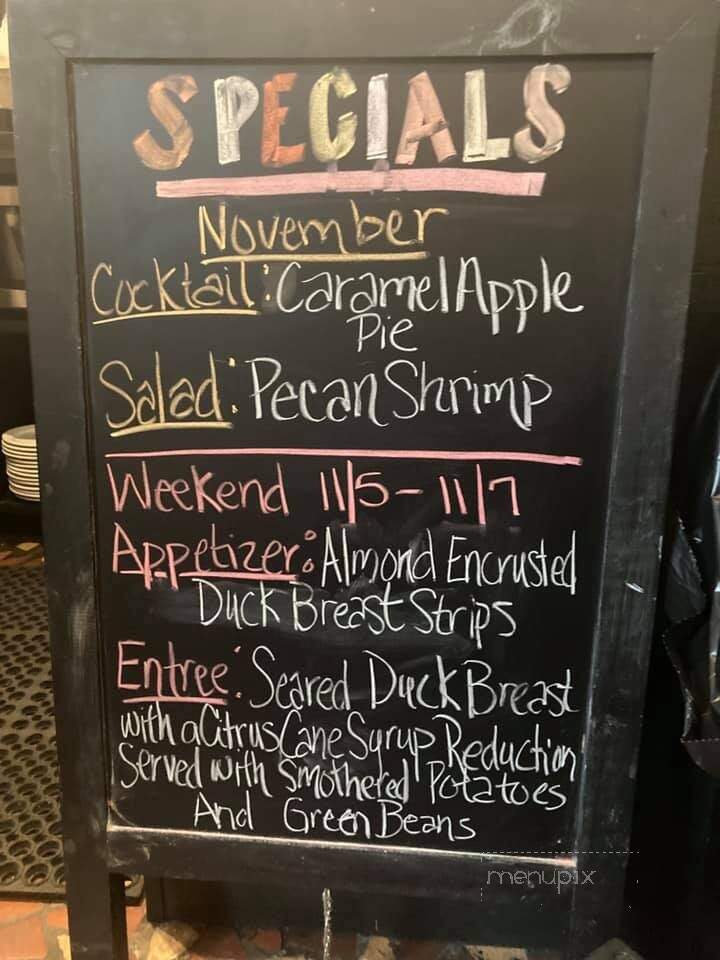 SPECIALS
November
Cocktail: Caramel Apple
Pie
Salad: Pecan Shrimp
Weekend 11/5-11/7
Appetizer: Almond Encrusted
Duck Breast Strips
Entree: Seared Duck Breast
with a Citrus Cane Syrup Reduction
Served with Smothered Potatoes
And Green Beans
menupix